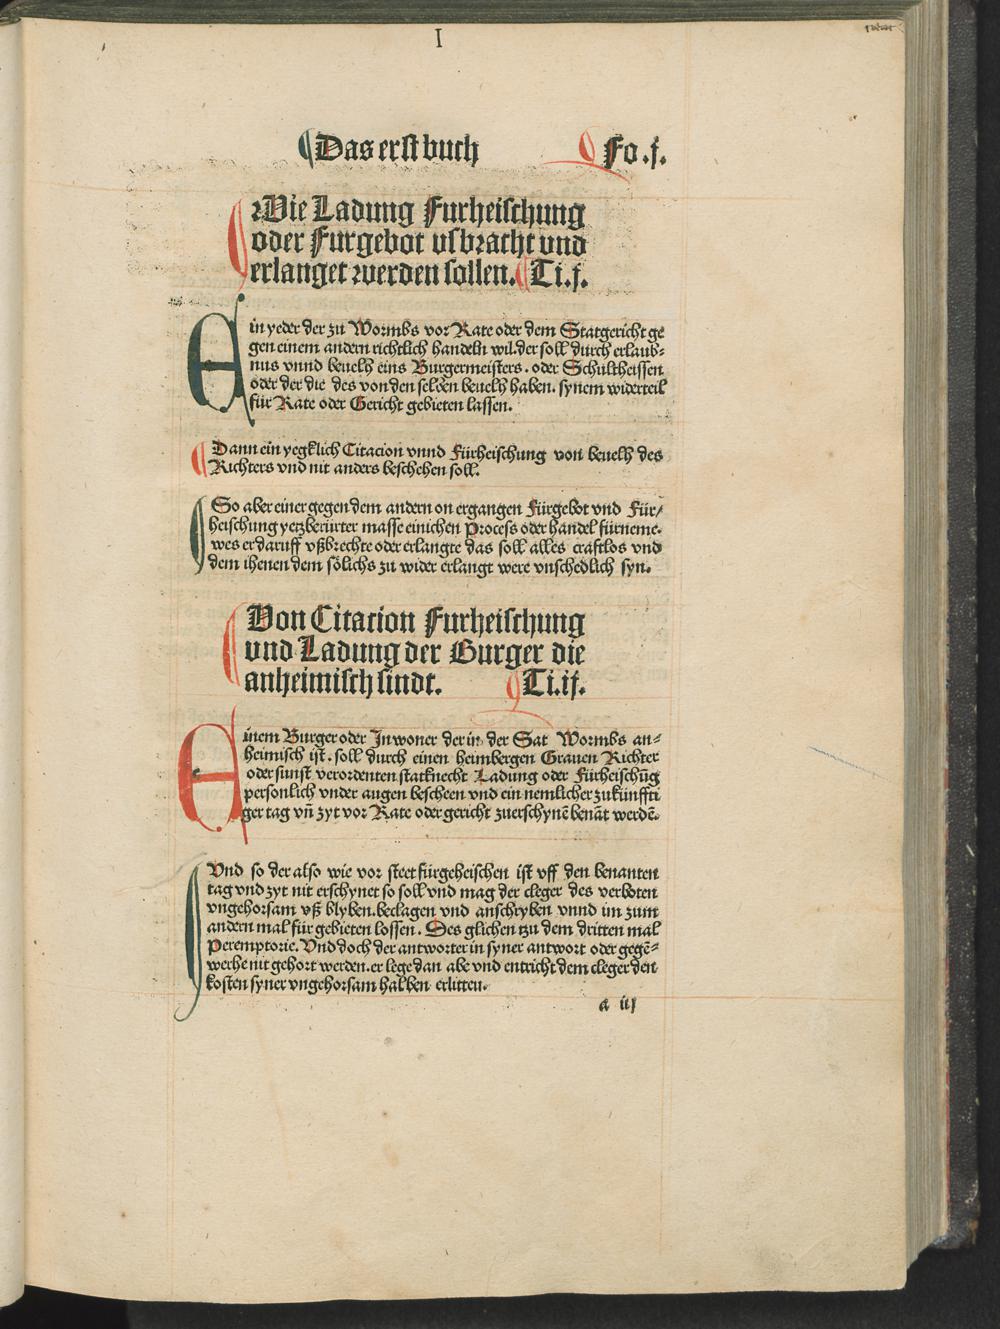 I
Das erst buch Fo.j.
Wie Ladung Furheischung
oder Furgebot vsbracht vnd
erlanget werden sollen. Ti.j.
Ein yeder der zu Wormbs vor Rate oder dem Statgericht ge
gen einem andern richtlich handeln wil. der soll durch erlaub⸗
nus vnnd beuelh eins Burgermeisters. oder Schultheissen
oder der die des von den selben beuelh haben. synem widerteil
für Rate oder Gericht gebieten lassen.
Dann ein yegklich Citacion vnnd Fürheischung von beuelh des
Richters vnd nit anders beschehen soll.
So aber einer gegen dem andern on ergangen Fürgebot vnd Für/
heischung yetzberürter masse einichen Process oder handel fürneme.
wes er daruff vßbrechte oder erlangte das soll alles craftlos vnd
dem ihenen dem sölichs zu wider erlangt were vnschedlich syn.
Von Citacion Furheischung
vnd Ladung der Burger die
anheimisch sindt. Ti.ij.
Einem Burger oder Inwoner der in der Sat Wormbs an⸗
heimisch ist. soll durch einen heimbergen Grauen Richter
oder sunst verordenten statknecht Ladung oder Fürheischūg
personlich vnder augen bescheen vnd ein nemlicher zukünffti
ger tag vn̄ zyt vor Rate oder gericht zuerschynē benāt werdē.
Vnd so der also wie vor steet fürgeheischen ist vff den benanten
tag vnd zyt nit erschynet so soll vnd mag der cleger des verboten
vngehorsam vß blyben. beclagen vnd anschryben vnnd im zum
andern mal für gebieten lossen. Des glichen tzu dem dritten mal
Peremptorie. Vnd doch der antworter in syner antwort oder gegē⸗
werhe nit gehort werden. er lege dan abe vnd entricht dem cleger den
kosten syner vngehorsam halben erlitten.
a iij